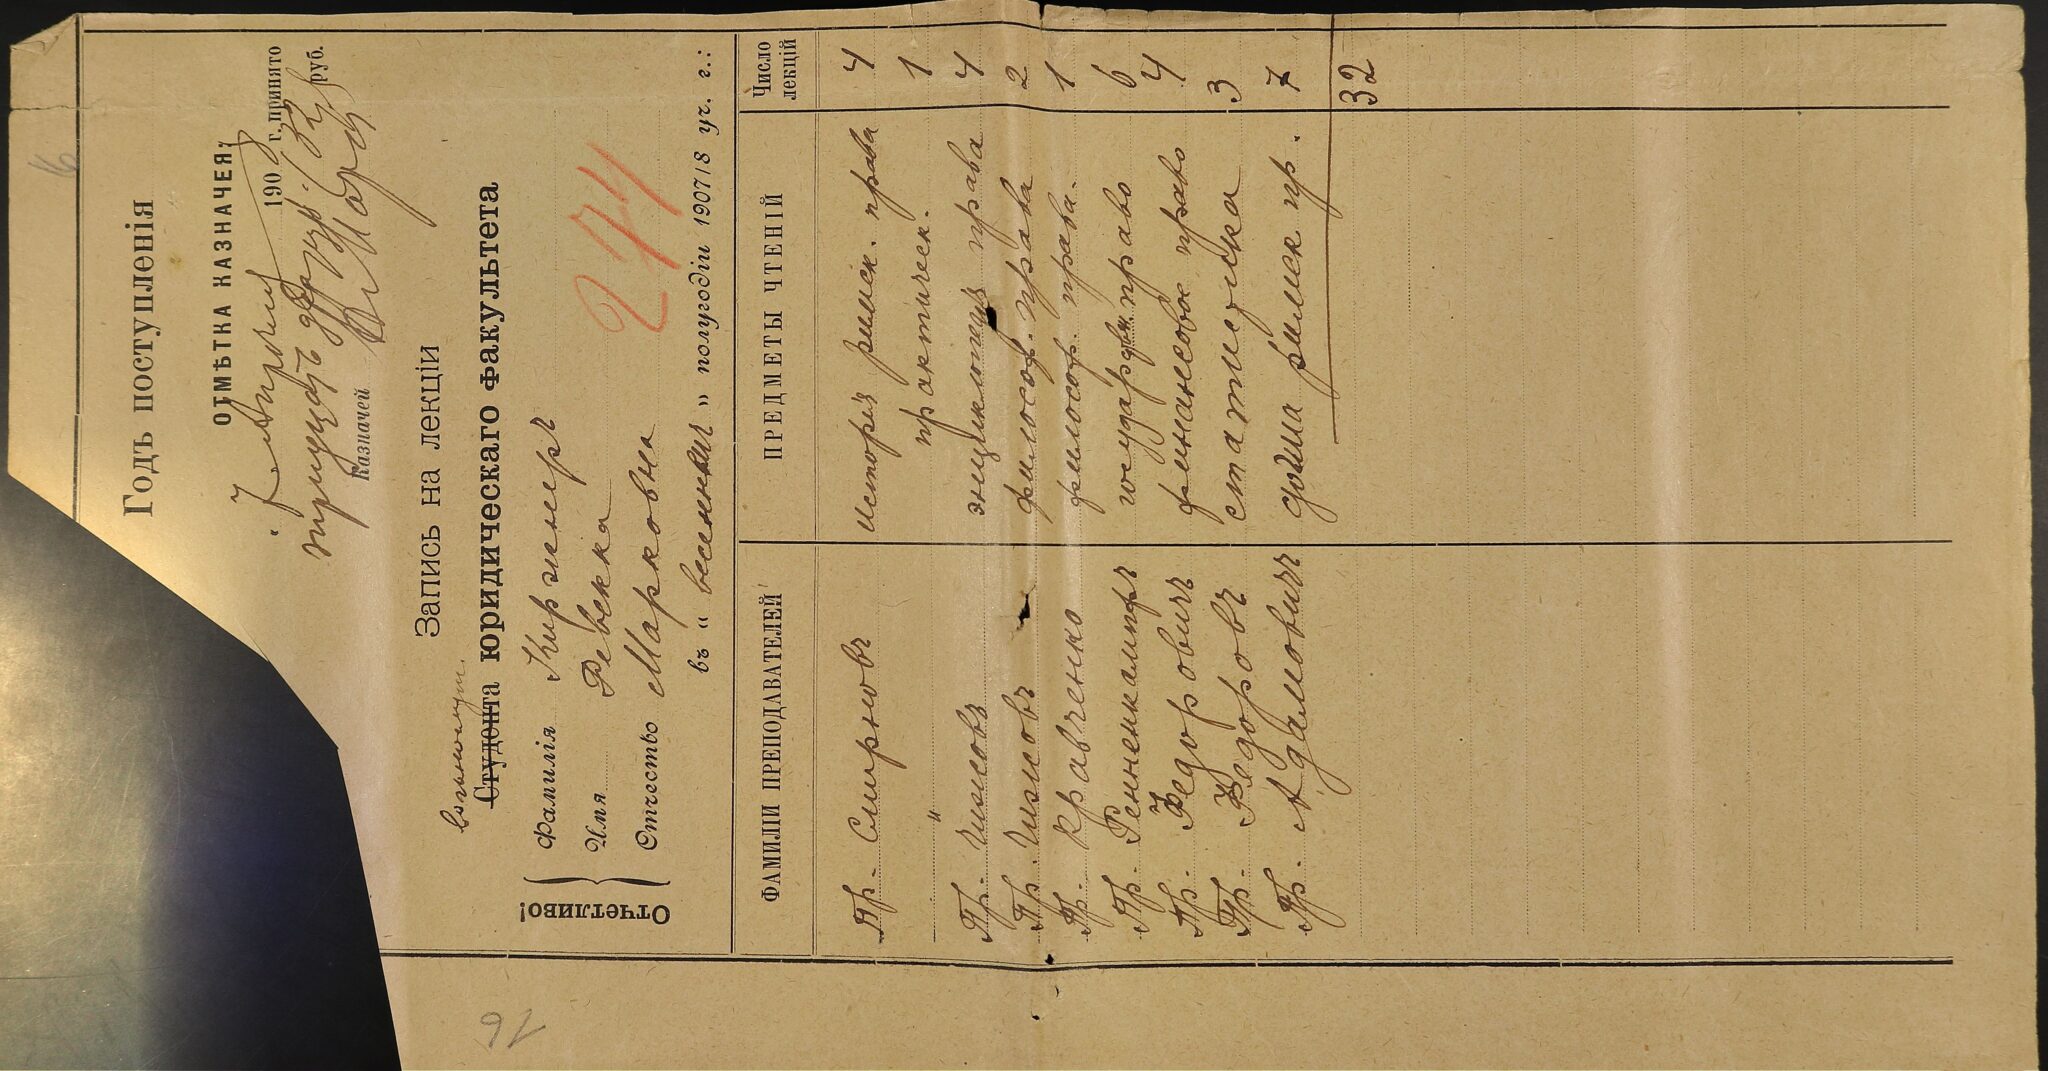 Годъ поступленія
ОТМѢТКА КАЗНАЧЕЯ:
7 Апрѣля 190 г. принято
тридцать два руб. /32/ руб.
Казначей
Запись на лекціи
вольнослуш.
Студента юридическаго факультета
Отчетливо!
Фамилія Киржнеръ
Имя Ревекка
Отчество Марковна
274
въ „ весеннемъ “ полугодіи 1907/8 уч. г.:
ФАМИЛІИ ПРЕПОДАВАТЕЛЕЙ ПРЕДМЕТЫ ЧТЕНІЙ Число лекцій
Пр. Смирновъ исторія римск. права 4
" практическ. 1
Пр. Чижовъ энциклопедія права 4
Пр. Чижовъ философ. права 2
Пр. Кравченко философ. права. 1
Пр. Ренненкампфъ государств. право 6
Пр. Федоровичъ финансовое право 4
Пр. Федоровъ статистика 3
Пр. Адамовичъ догма римск пр. 7
32
16